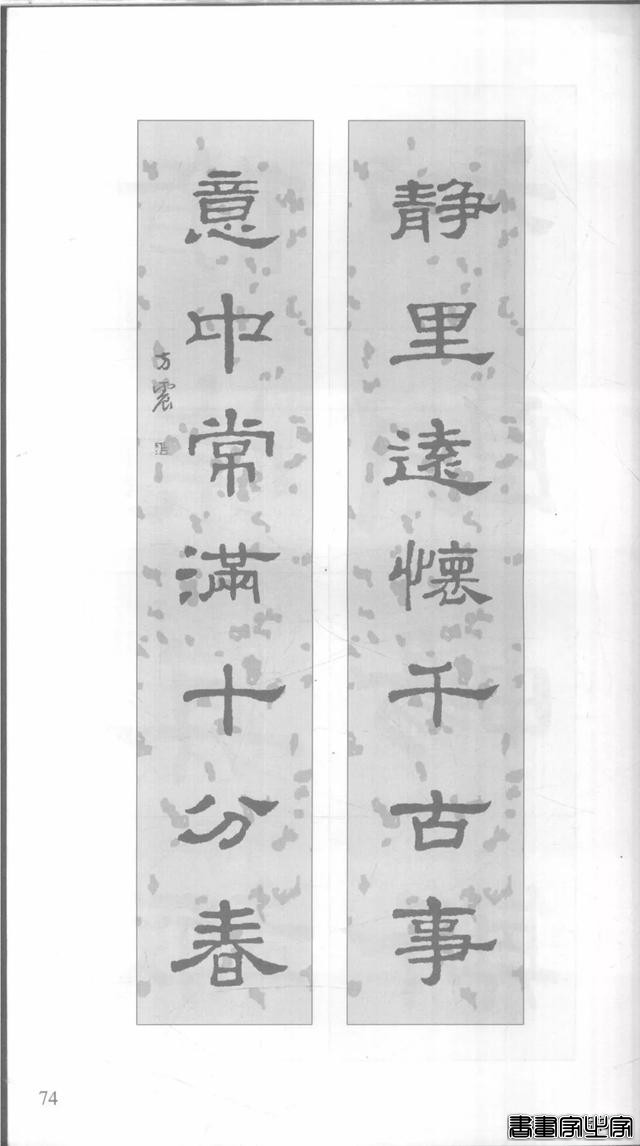 静里遠懷千古事
意中常滿十分春
方震
74
書畫家必字